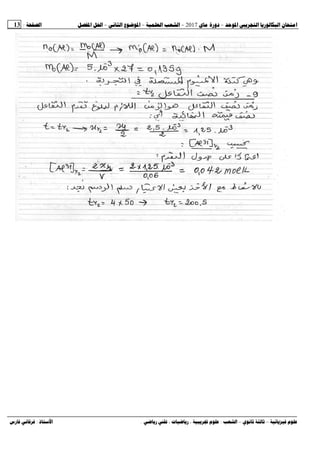 امتحان البكالوريا التجريبي الموحد - دورة ماي 2017 - الشعب العلمية - الموضوع الثاني - الحل المفصل الصفحة 13
n₀(Al) = m₀(Al)/M → m₀(Al) = n₀(Al) . M
m₀(Al) = 5.10⁻³ × 27 = 0,135g
وهي كتلة الألمنيوم المستعملة في التجربة .
9 - زمن نصف التفاعل t½ :
زمن نصف التفاعل هو الزمن اللازم لبلوغ تقدم التفاعل
نصف قيمته النهائية أي :
t = t½ → x½ = xf/2 = 2,5.10⁻³/2 = 1,25.10⁻³
نحسب [Al³⁺]½ :
اعتمادا على جدول التقدم :
[Al³⁺]½ = 2x½/V = 2×1,25.10⁻³/0,06 = 0,042 mol/L
بالاسقاط مع الأخذ بعين الاعتبار سلم الرسم نجد :
t½ = 4×50 → t½ = 200 s
علوم فيزيائية - ثالثة ثانوي - الشعب : علوم تجريبية ، رياضيات ، تقني رياضي الأستاذ : فرقاني فارس